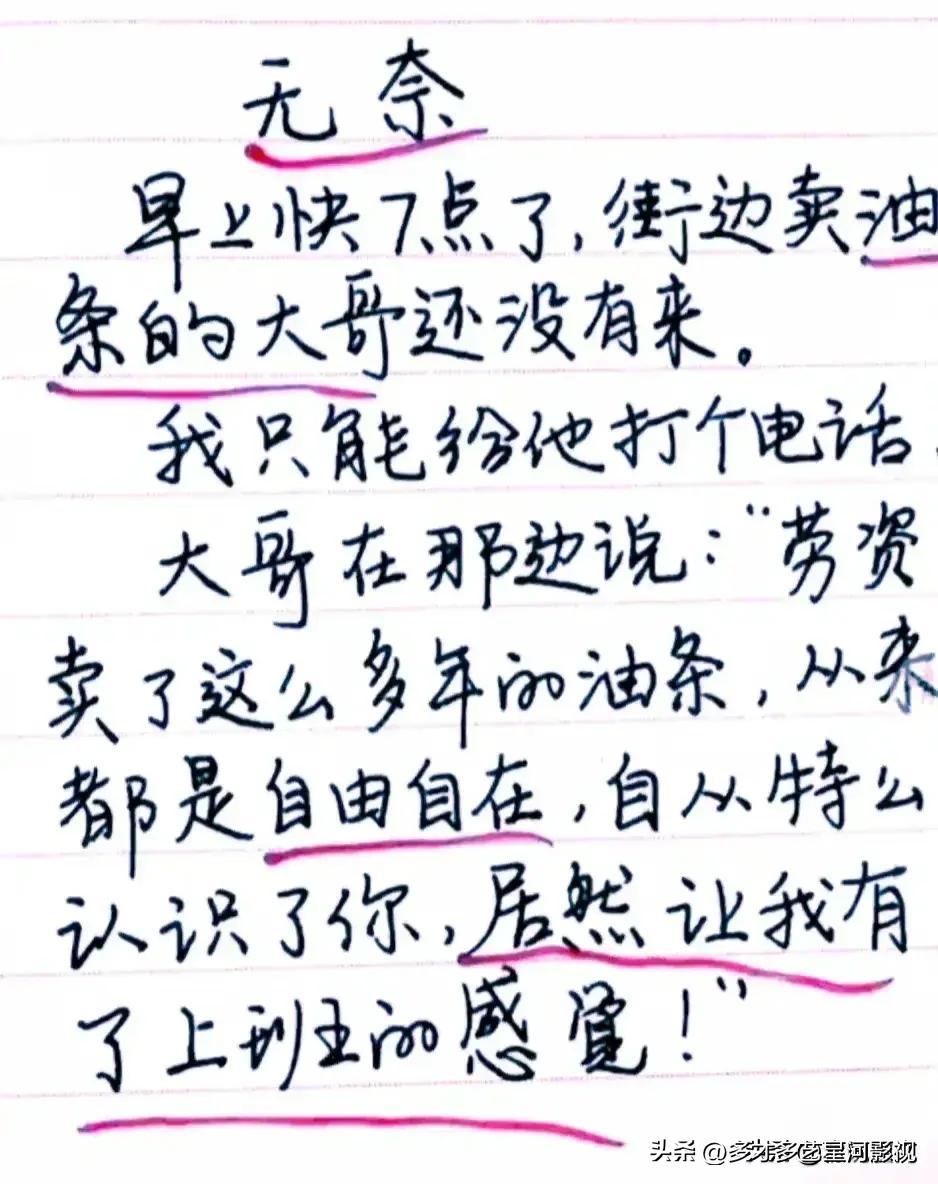 无奈
早上快7点了,街边卖油
条的大哥还没有来。
我只能给他打个电话,
大哥在那边说:“劳资
卖了这么多年的油条,从来
都是自由自在,自从特么
认识了你,居然让我有
了上班的感觉!”
头条 @多才多艺星河影视